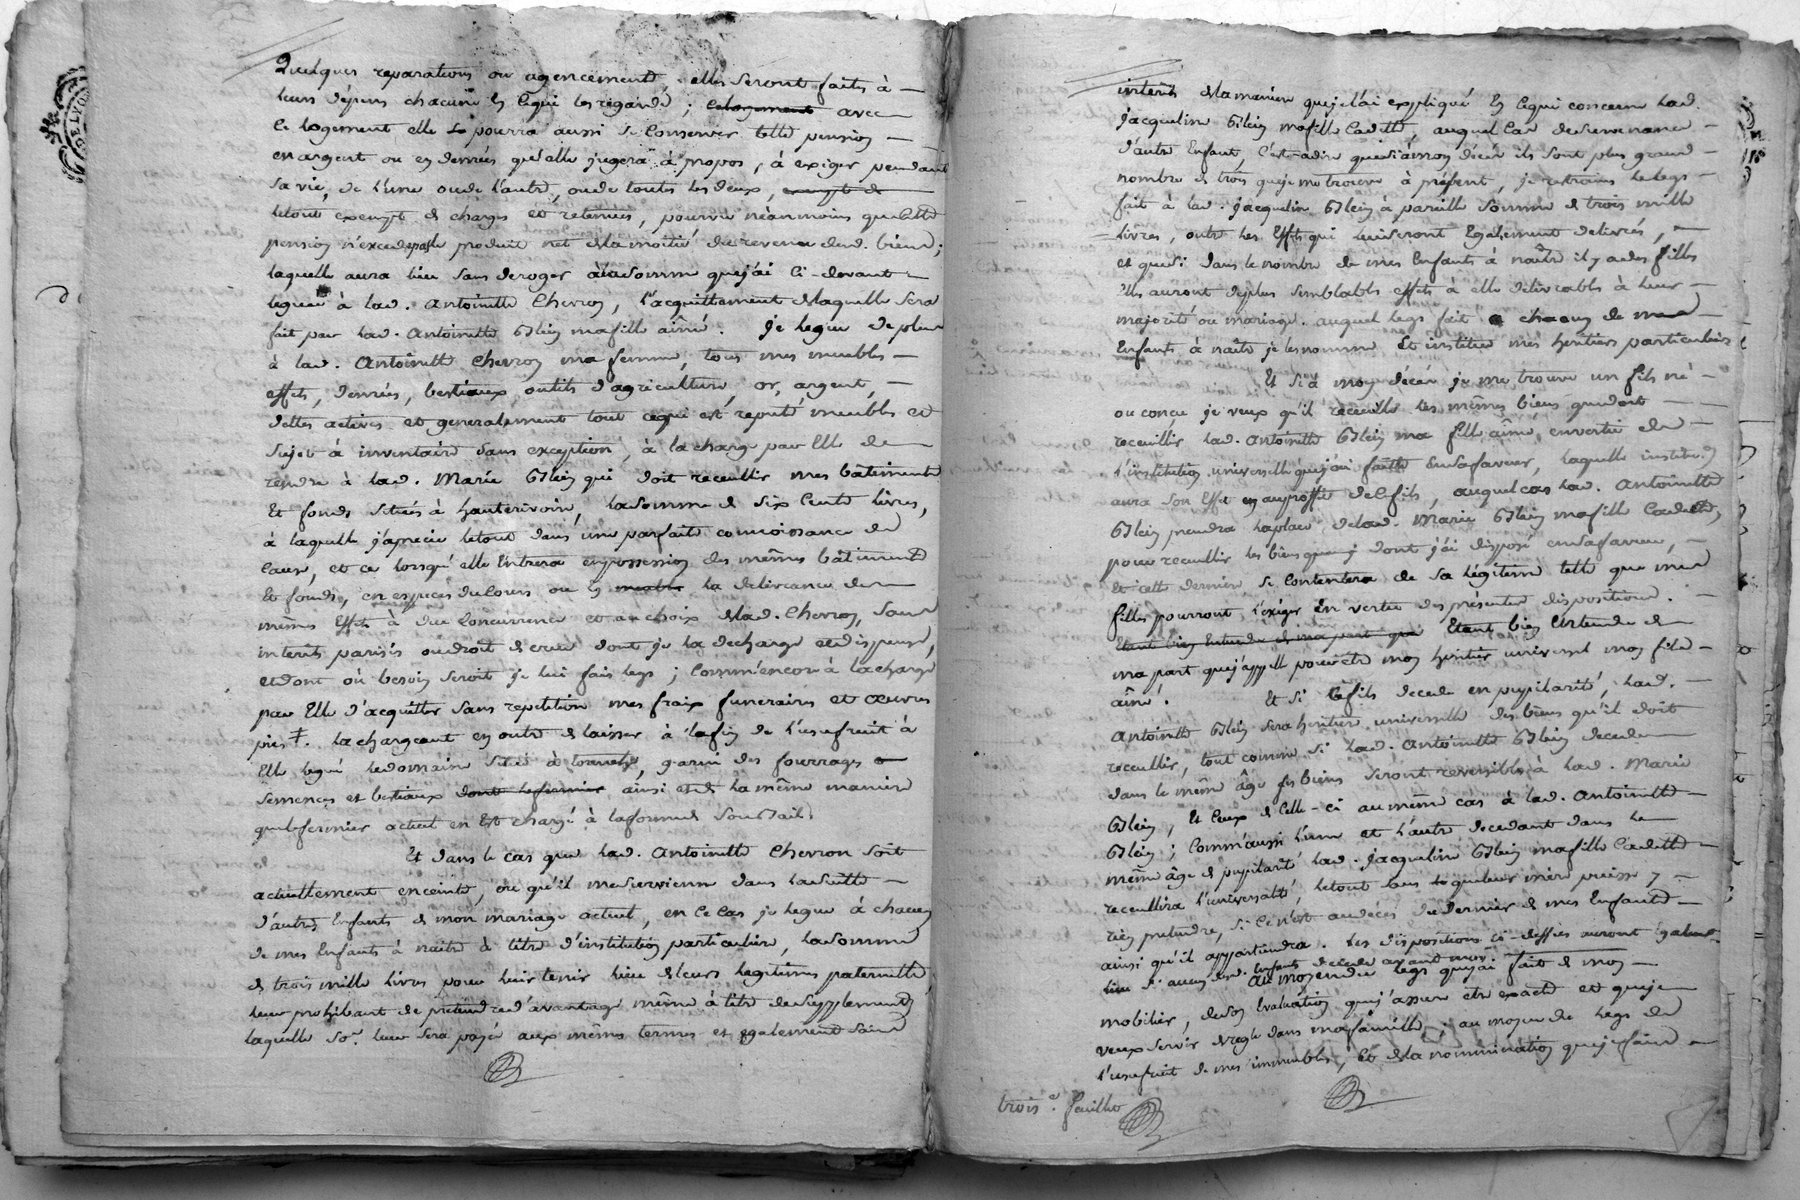 Quelques reparations ou agencement, elles seront faits à
leurs dépens chacun en ce qui les regarde ; ce logement avec
le logement elle se pourra aussi se conserver telle pension
en argent ou en denrées qu'elle jugera à propos, à exiger pendant
sa vie, de l'une ou de l'autre, ou de touts les deux, exempt de
le tout exempt de charges et retenues, pourvu néanmoins que cette
pension n'excede pas le produit net de la moitié du revenu desd. biens ;
laquelle aura lieu sans deroger à la somme que j'ai ci-devant
leguée à lad. Antoinette Chevron, l'acquittement de laquelle sera
fait par lad. Antoinette Blein ma fille aînée. Je legue de plus
à lad. Antoinette Chevron ma femme, tous mes meubles
effets, denrées, bestiaux, outils d'agriculture, or, argent,
dettes actives et generalement tout ce qui est reputé meubles et
sujet à inventaire sans exception, à la charge par Elle de
rendre à lad. Marie Blein qui doit receuillir mes bâtiments
Et fonds situés à hauterivoire, la somme de six Cents livres,
à laquelle j'aprecie le tout dans une parfaite connoissance de
cause, et ce lorsqu'elle Entrera en possession des mêmes bâtiments
Et fonds, en espèces de cours ou en meuble la delivrance de
mêmes Effets à due Concurrence et au choix de lad. Chevron, sans
interêts parisis ou droit de crue dont je la decharge et dispense,
et dont où besoin seroit je lui fais legs ; Comm'encore à la charge
par Elle d'acquitter sans repetition mes fraix funeraires et œuvres
pies ‡. la chargeant en outre de laisser à la fin de l'usufruit à
Elle legué le domaine situé à garni des fourrages
semences et bestiaux dont le fermier ainsi et de la même maniere
que le fermier actuel en Est chargé à la forme de son Bail.
Et dans le cas que lad. Antoinette Chevron soit
actuellement enceinte, ou qu'il me survienne dans la suitte
d'autres Enfants de mon mariage actuel, en ce Cas je legue à chacun
de mes Enfants à naitre à titre d'institution particuliere, la somme
de trois mille livres pour leur tenir lieu de leurs legitimes paternelle
leur prohibant de prétendre d'avantage même à titre de supplement,
laquelle so.e leur sera payée aux mêmes termes et également sans
interêts de la maniere que je l'ai expliqué En ce qui concerne lad.
Jacqueline Blein ma fille Cadette, auquel Cas de survenance
d'autre Enfant, C'est-à-dire que si à mon décès ils sont plus grand
nombre de trois que je me trouve à présent, je restrains le legs
fait à lad. Jacqueline Blein à pareille somme de trois mille
livres, outre les Effets qui lui seront Egalement delivrés,
et que si dans le nombre de mes Enfants à naître il y a des filles
Elles auront de plus semblables effets à elle delivrables à leur
majorité ou mariage. auquel legs fait à chacun de mes
Enfants à naître je les nomme Et institue mes héritiers particuliers
Et si à mon décès je me trouve un fils né
ou conçu je veux qu'il receuille les mêmes biens que doit
receuillir lad. Antoinette Blein ma fille aînée, en vertu de
l'institution universelle que j'ai faitte en sa faveur, laquelle institution
aura son Effet en au proffit de ce fils, auquel cas lad. Antoinette
Blein prendra la place de lad. Marie Blein ma fille Cadette,
pour receuillir les biens dont j'ai disposé en sa faveur,
Et cette derniere se Contentera de sa légitime telle que mes
filles pourront l'exiger en vertu des présentes dispositions.
Etant bien Entendu de ma part que Etant bien Entendu de
ma part que j'appelle pour être mon héritier universel mon fils
aîné. Et si ce fils decede en pupilarité, lad.
Antoinette Blein sera héritiere universelle des biens qu'il doit
receuillir, tout comme si lad. Antoinette Blein decede
dans le même âge ses biens seront reversibles à lad. Marie
Blein, Et Ceux de Celle-ci au même cas à lad. Antoinette
Blein ; Comm'aussi l'une et l'autre decedant dans le
même âge de pupilarité lad. Jacqueline Blein ma fille Cadette
receuillira l'universalité, le tout sans que leur mere puisse y
rien prétendre, si ce n'est au décès du dernier de mes Enfants
ainsi qu'il appartiendra. Les dispositions ci-dessus auront également
lieu si aucun desd. Enfants decede avant moi.
Au moyen du legs que j'ai fait de mon
mobilier, de son Evaluation que j'assure etre exacte et que je
veux servir de regle dans ma famille ; au moyen du legs de
l'usufruit de mes immeubles, Et de la nomination que je fais
trois.e feuille